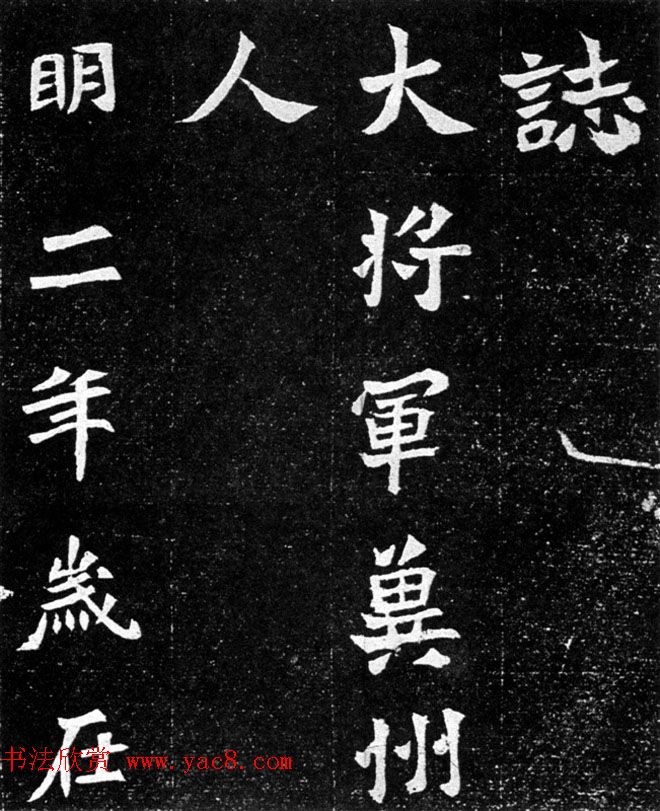 誌
大将軍冀州
人
明二年歲在
书法欣赏 www.yac8.com